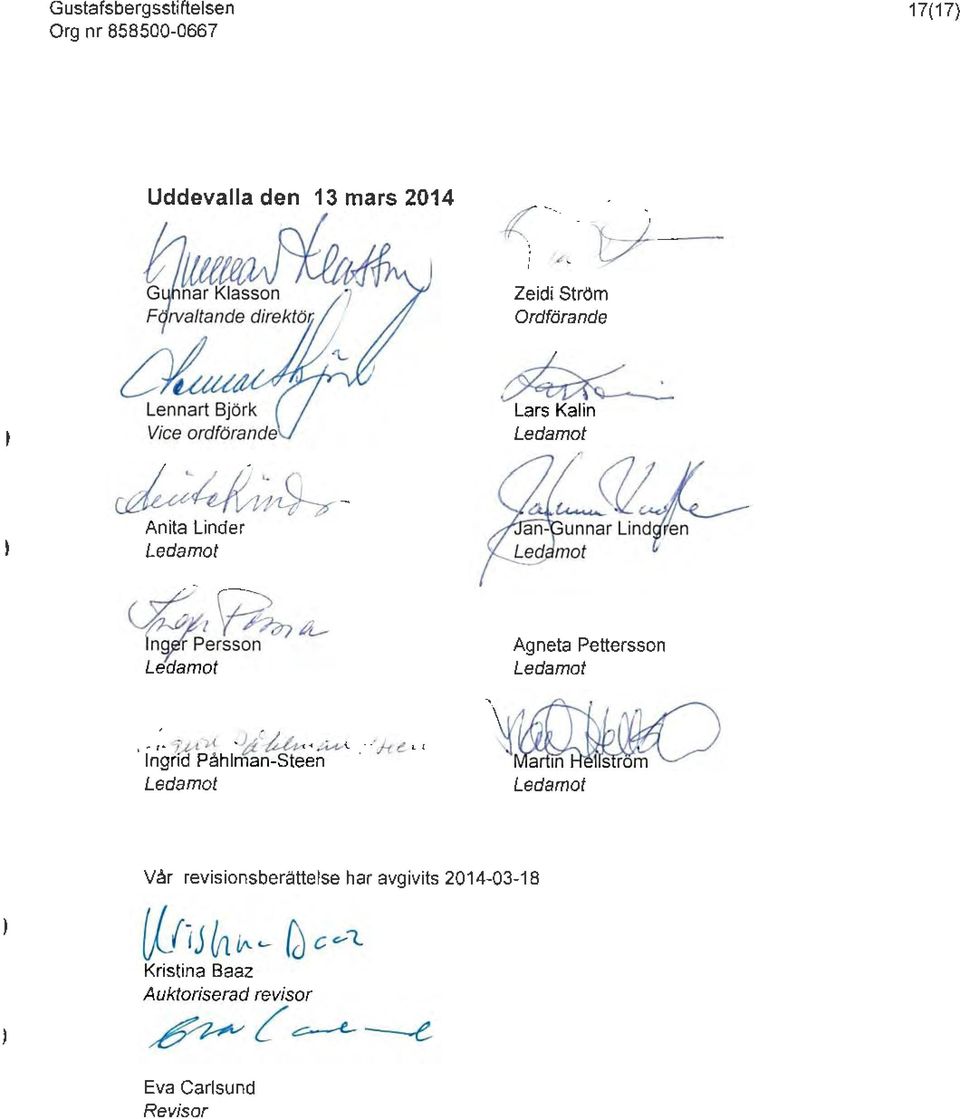 Gustafsbergsstiftelsen
17(17)
Org nr 858500-0667
Uddevalla den 13 mars 2014
Gunnar Klasson
Gunnar Klasson
Förvaltande direktör
Zeidi Ström
Ordförande
Lennart Björk
Lennart Björk
Vice ordförande
Lars Kalin
Ledamot
Anita Linder
Anita Linder
Ledamot
Jan-Gunnar Lindgren
Ledamot
Inger Persson
Inger Persson
Ledamot
Agneta Pettersson
Ledamot
Ingrid Påhlman-Steen
Ingrid Påhlman-Steen
Ledamot
Martin Hellström
Ledamot
Vår revisionsberättelse har avgivits 2014-03-18
Kristina Baaz
Kristina Baaz
Auktoriserad revisor
Eva Carlsund
Revisor